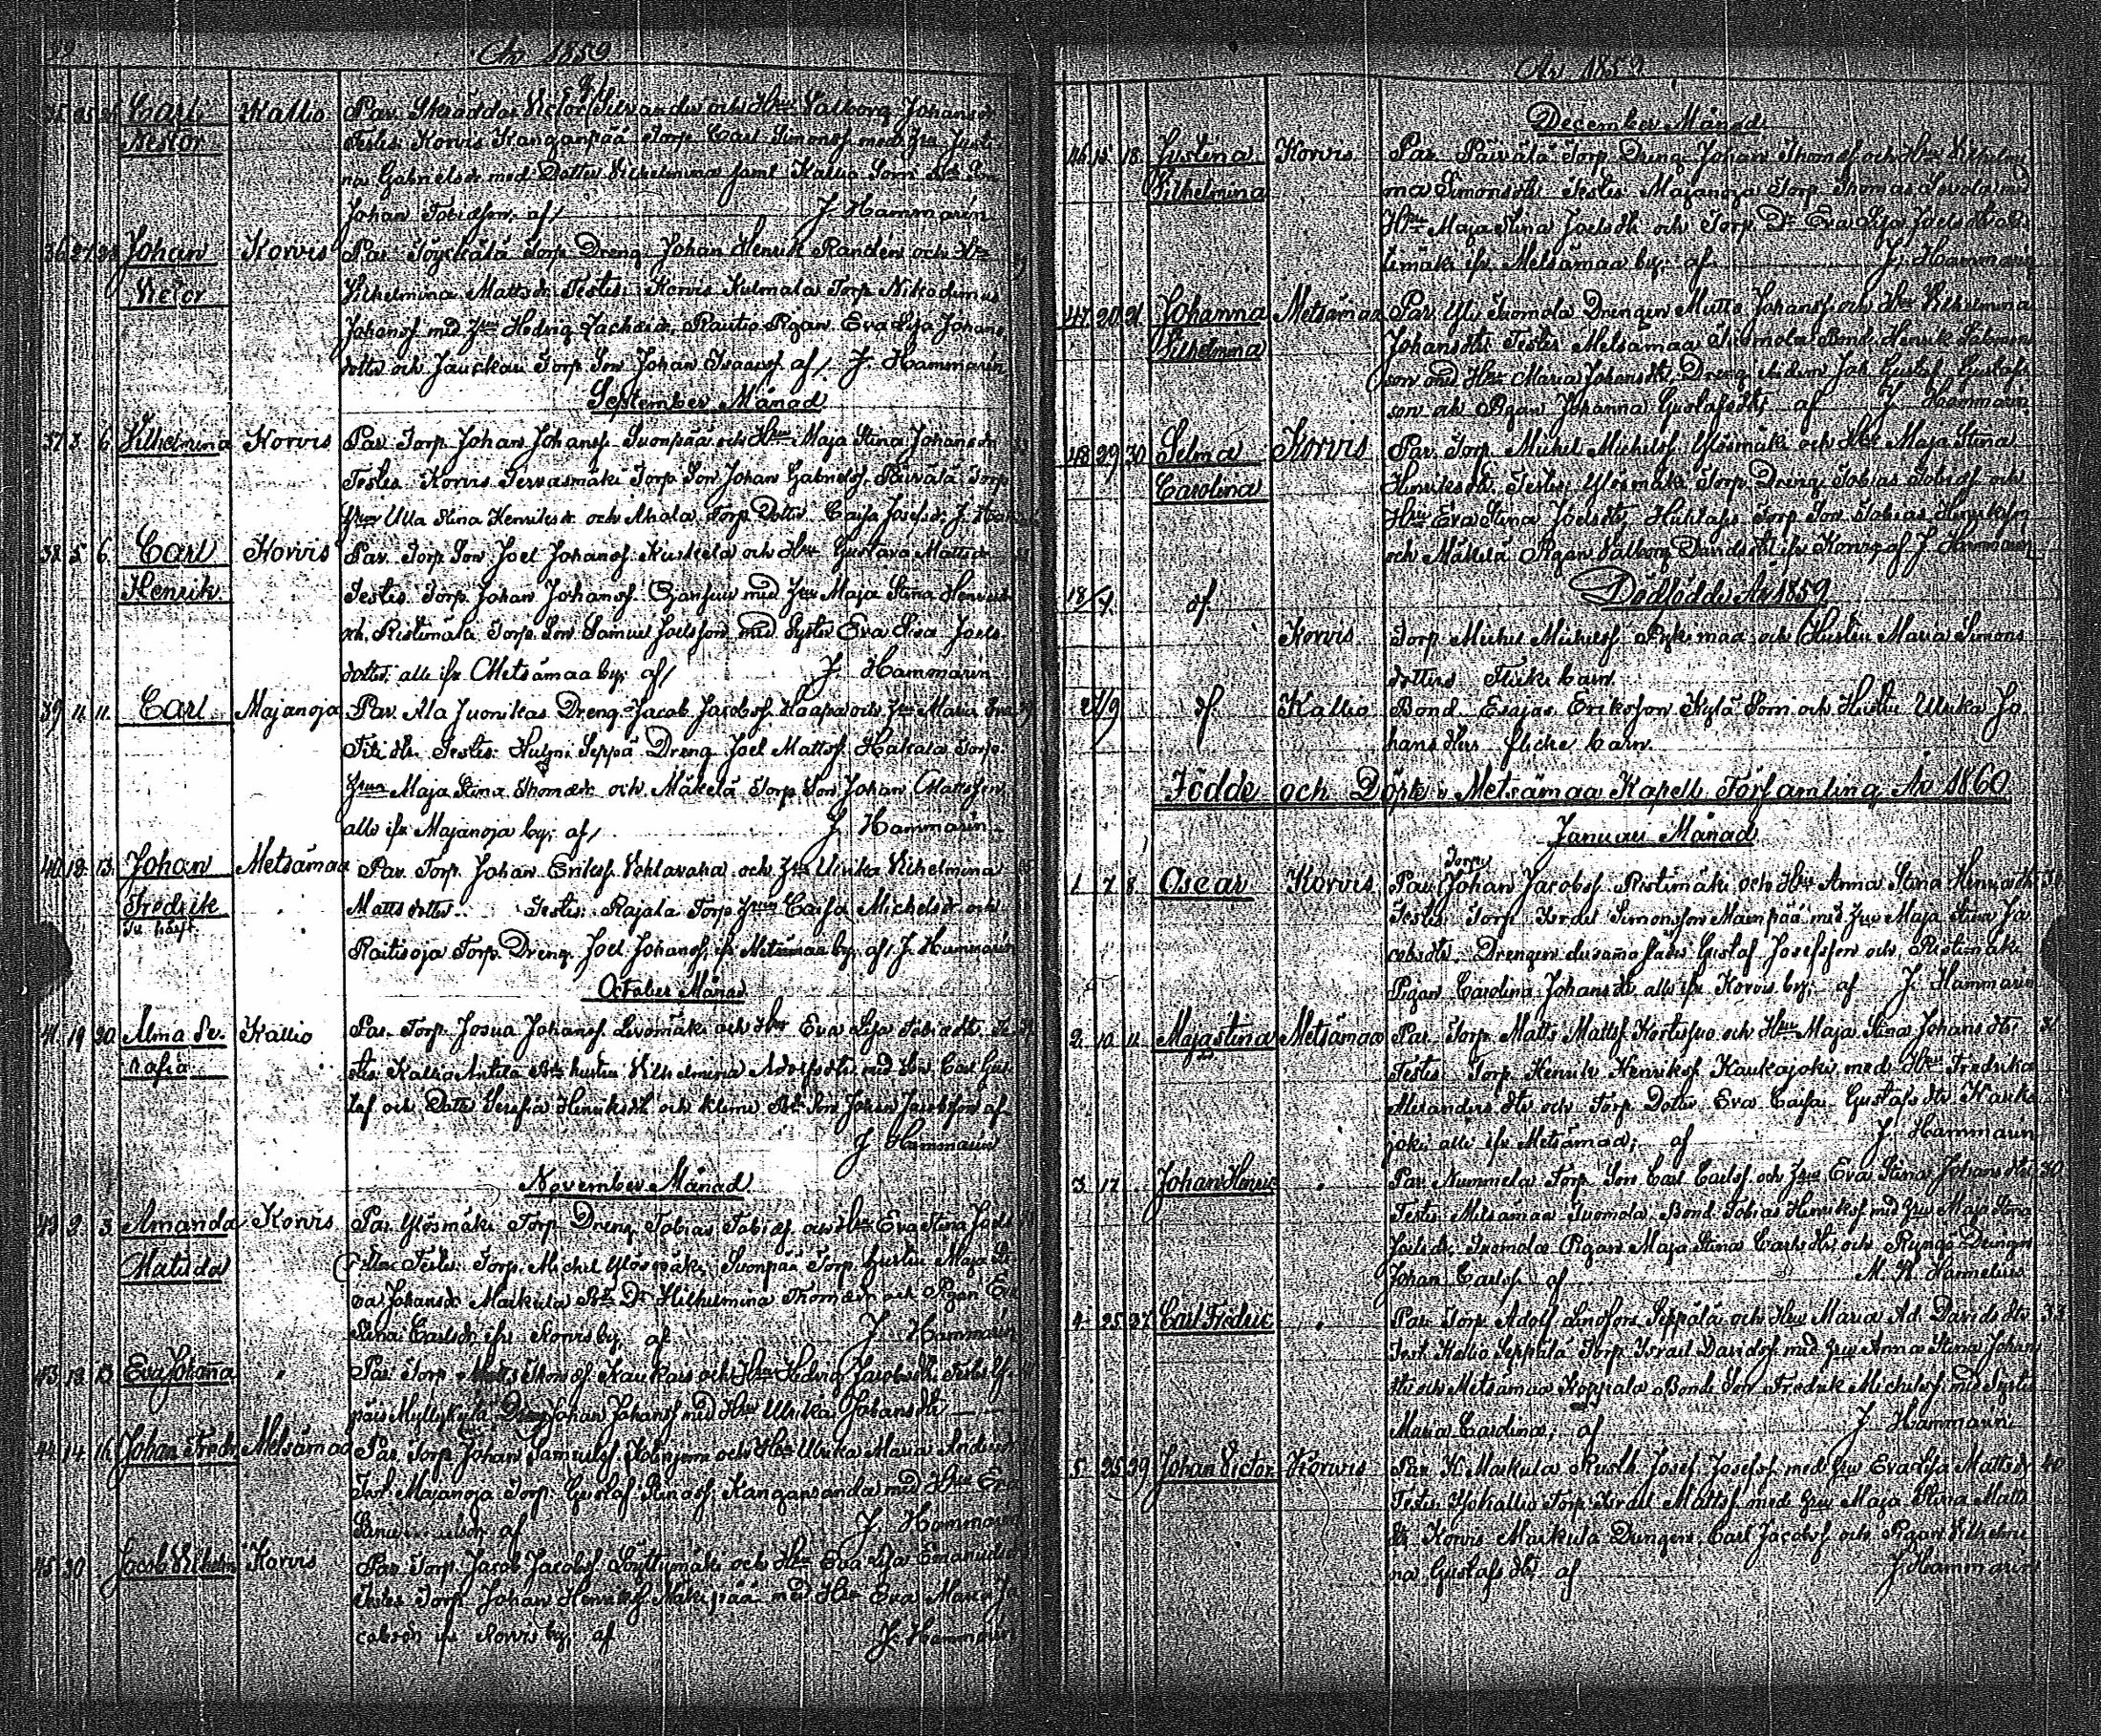 År 1859
35. 25 26 Carl Kallio Par. Skräddar Victor Silvander och Hru Valborg Johansdr
Nestor Testes. Korvis Kanganpää Torp. Carl Simonss. med Hru Justi-
na Gabrielsdr med Dotter Vilhelmina samt Kallio Sorri Son
Johan Tobiasson, af / J. Hammarin
36 27 28 Johan Korvis Par Töyckälä Torp Dreng Johan Henrik Randen och Hru
Victor Vilhelmina Mattsdr Testes. Korvis Kulmala Torp Nikodemus
Johanss. med Hru Hedvig Zachrisdr, Rautio Pigan Eva Lisa Johans
dotter och Jauckari Torp Son Johan Isaacss. af / J. Hammarin
September Månad
37 3 6 Vilhelmina Korvis Par Torp Johan Johanss. Suonpää och Hru Maja Stina Johansdr
Testes. Korvis Tervasmäki Torp Son Johan Gabrielss. Päivälä Torp
Hru Ulla Stina Henriksdr och Ahola Torp Dotter Caisa Josefsdr. J. Ham
38 5 6 Carl Korvis Par. Torp Son Joel Johanss. Kuskela och Hru Gustava Mattsdr
Henrik Testes Torp. Johan Johanss. med Hru Maja Stina Henricsdr
och Ristimälä Torp. Son Samuel Joelsson med Syster Eva Lisa Joels
dotter, alle ifr Metsämaa by, af / J. Hammarin
39 11. 11. Carl Majanoja Par. Ala Juonikas Dreng Jacob Jacobss. Haapa och Hru Maria
Testes: Seppä Dreng Joel Mattss. Hakala Torp.
Hrun Maja Stina Thomasdr och Mäkelä Torp Son Johan Mattsson
alle ifr Majanoja by, af / J. Hammarin
40 12. 13. Johan Metsämaa Par. Torp. Johan Erikss. Vohlavaha och Hru Ulrika Vilhelmina
Fredrik Matts dotter. Testes. Rajala Torp Hrun Caisa Michelsdr och
Raitisoja Torp. Dreng. Joel Johanss, ifr Metsämaa by. af / J. Hammarin
October Månad
41. 19 20 Alma Se- Kallio Par Torp. Josua Johanss. Livomäki och Hru Eva Lisa Tobiasdtr. Te-
rafia stes. Kallio Anttila hustru Vilhelmina Adolfsdtr med Son Carl Gus-
taf och Dotter Serafia Henriksdtr och Klemi Son Johan Jacobsson af
J. Hammarin
November Månad
42 2. 3 Amanda Korvis Par Ylösmäki Torp Dreng Tobias Tobiass och Hru Eva Stina Joels
Matilda dtr. Testes: Torp. Michel Ylösmäki, Suonpää Torp. hustru Maja Sti-
na Johansdr Markula Dr Vilhelmina Thomasdr och Pigan Eva
Stina Carlsdr ifr Korvis by, af J. Hammarin
43 12. 13 Eva Johaña " Par. Torp Matts Thomass Kaukais och Hru Hedvig Jacobsdtr. Testes
Myllykylä Dreng Johan Johanss med Hru Ulrika Johansdtr
44 14 16 Johan Fredr Metsämaa Par. Torp Johan Samuelss. och Hru Ulrika Maria Anders
Test. Majanoja Torp. Gustaf Kangasanda med Hru Eva
af J. Hammarin
45 30 Jacob Vilhelm Korvis Par Torp. Jacob Jacobss. Löyttymäki och Hru Eva Lisa Emanuelsd
Testes Torp. Johan Henrikss Mäkipää med Hru Eva Maria Ja-
cobsdr ifr Korvis by, af J. Hammarin
År 1859
December Månad
46 15. 18. Justina Korvis Par. Päivälä Torp. Dreng Johan Thomass och Hru Vilhelmi-
Vilhelmina na Simonsdtr Testes Majanoja Torp Thomas med
Hru Maja Stina Joelsdtr och Torp Dr Eva Lisa Joelsdtr
ifr. Metsämaa by, af J. Hammarin
47. 20 21. Johanna Metsämaa Par. Yli Tuomola Drengen Matts Johanss och Hru Vilhelmina
Vilhelmina Johansdtr Testes Metsämaa Tuomola Bond. Henrik Salomon
son med Hru Maria Johansdtr, Dreng Joh. Gustaf Gustafs
son och Pigan Johanna Gustafsdtr af J. Hammarin
48 29 30 Selma Korvis Par. Torp. Michel Michelss. Ylösmäki och Hru Maja Stina
Carolina Henriksdr. Testes Ylösmäki Torp. Dreng Tobias Tobiass och
Hru Eva Stina Joelsdtr, Torp Son Tobias Henriksson
och Mäkelä Pigan Valborg Davidsdtr ifr Korvis af J Hammarin
Dödfödde År 1859
18/7. df. Korvis Torp. Michel Michelss. och Hustru Maria Simons
dotters Flicke barn.
21/9 df Kallio Bond. Esajas Eriksson Kylä Sorri och Hustru Ulrika Jo-
hans dtrs flicke barn.
Födde och Döpte i Metsämaa Kapell Församling År 1860
Januari Månad
1. 7 8. Oscar Korvis Par. Torp Johan Jacobss. Ristimäki och Hru Anna Stina Henricsdtr
Testes: Torp Israel Simonsson Mainpää med Hru Maja Stina Ja-
cobsdtr. Drengen Gustaf Josefsson och Ristimäki
Pigan Carolina Johansdtr alle ifr Korvis by, af J Hammarin
2. 10. 11. Maja Stina Metsämaa Par. Torp. Matts Mattss. Kortessuo och Hru Maja Stina Johansdtr
Testes: Torp. Henrik Henrikss. Kaukajoki med Hru Fredrika
Alexanders dtr och Torp Dotter Eva Caisa Gustafs dtr Kauka
joki alle ifr Metsämaa, af J. Hammarin
3. 17. Johan Henric " Par. Nummela Torp Son Carl Carlss. och Hru Eva Stina Johansdtr 30
Testes Metsämaa Tuomola Bond. Tobias Henrikss med Hru Maja Stina
Joelsdr, Tuomola Pigan Maja Stina Carlsdtr, och Drengen
Johan Carlss. af M. K. Hamelius
4. 25 27. Carl Fredric " Par. Torp Adolf Lindfors Seppälä och Hru Maria Ad. Davids dtr 33
Test. Kallio Seppälä Torp. Israel Davidss med Hru Anna Stina Johans
dtr och Metsämaa Bonde Son Fredrik Michelss med Syster
Maria Carolina, af J Hammarin
5. 25 29 Johan Victor Korvis Par. K. Markula Rusth. Josef Josefss. med Hru Eva Lisa Mattsdr 40
Testes Yokallio Torp. Israel Mattss med Hru Maja Stina Matts
dr. Korvis Markula Drengen Carl Jacobss och Pigan Vilhelmi
na Gustafs dtr af J. Hammarin